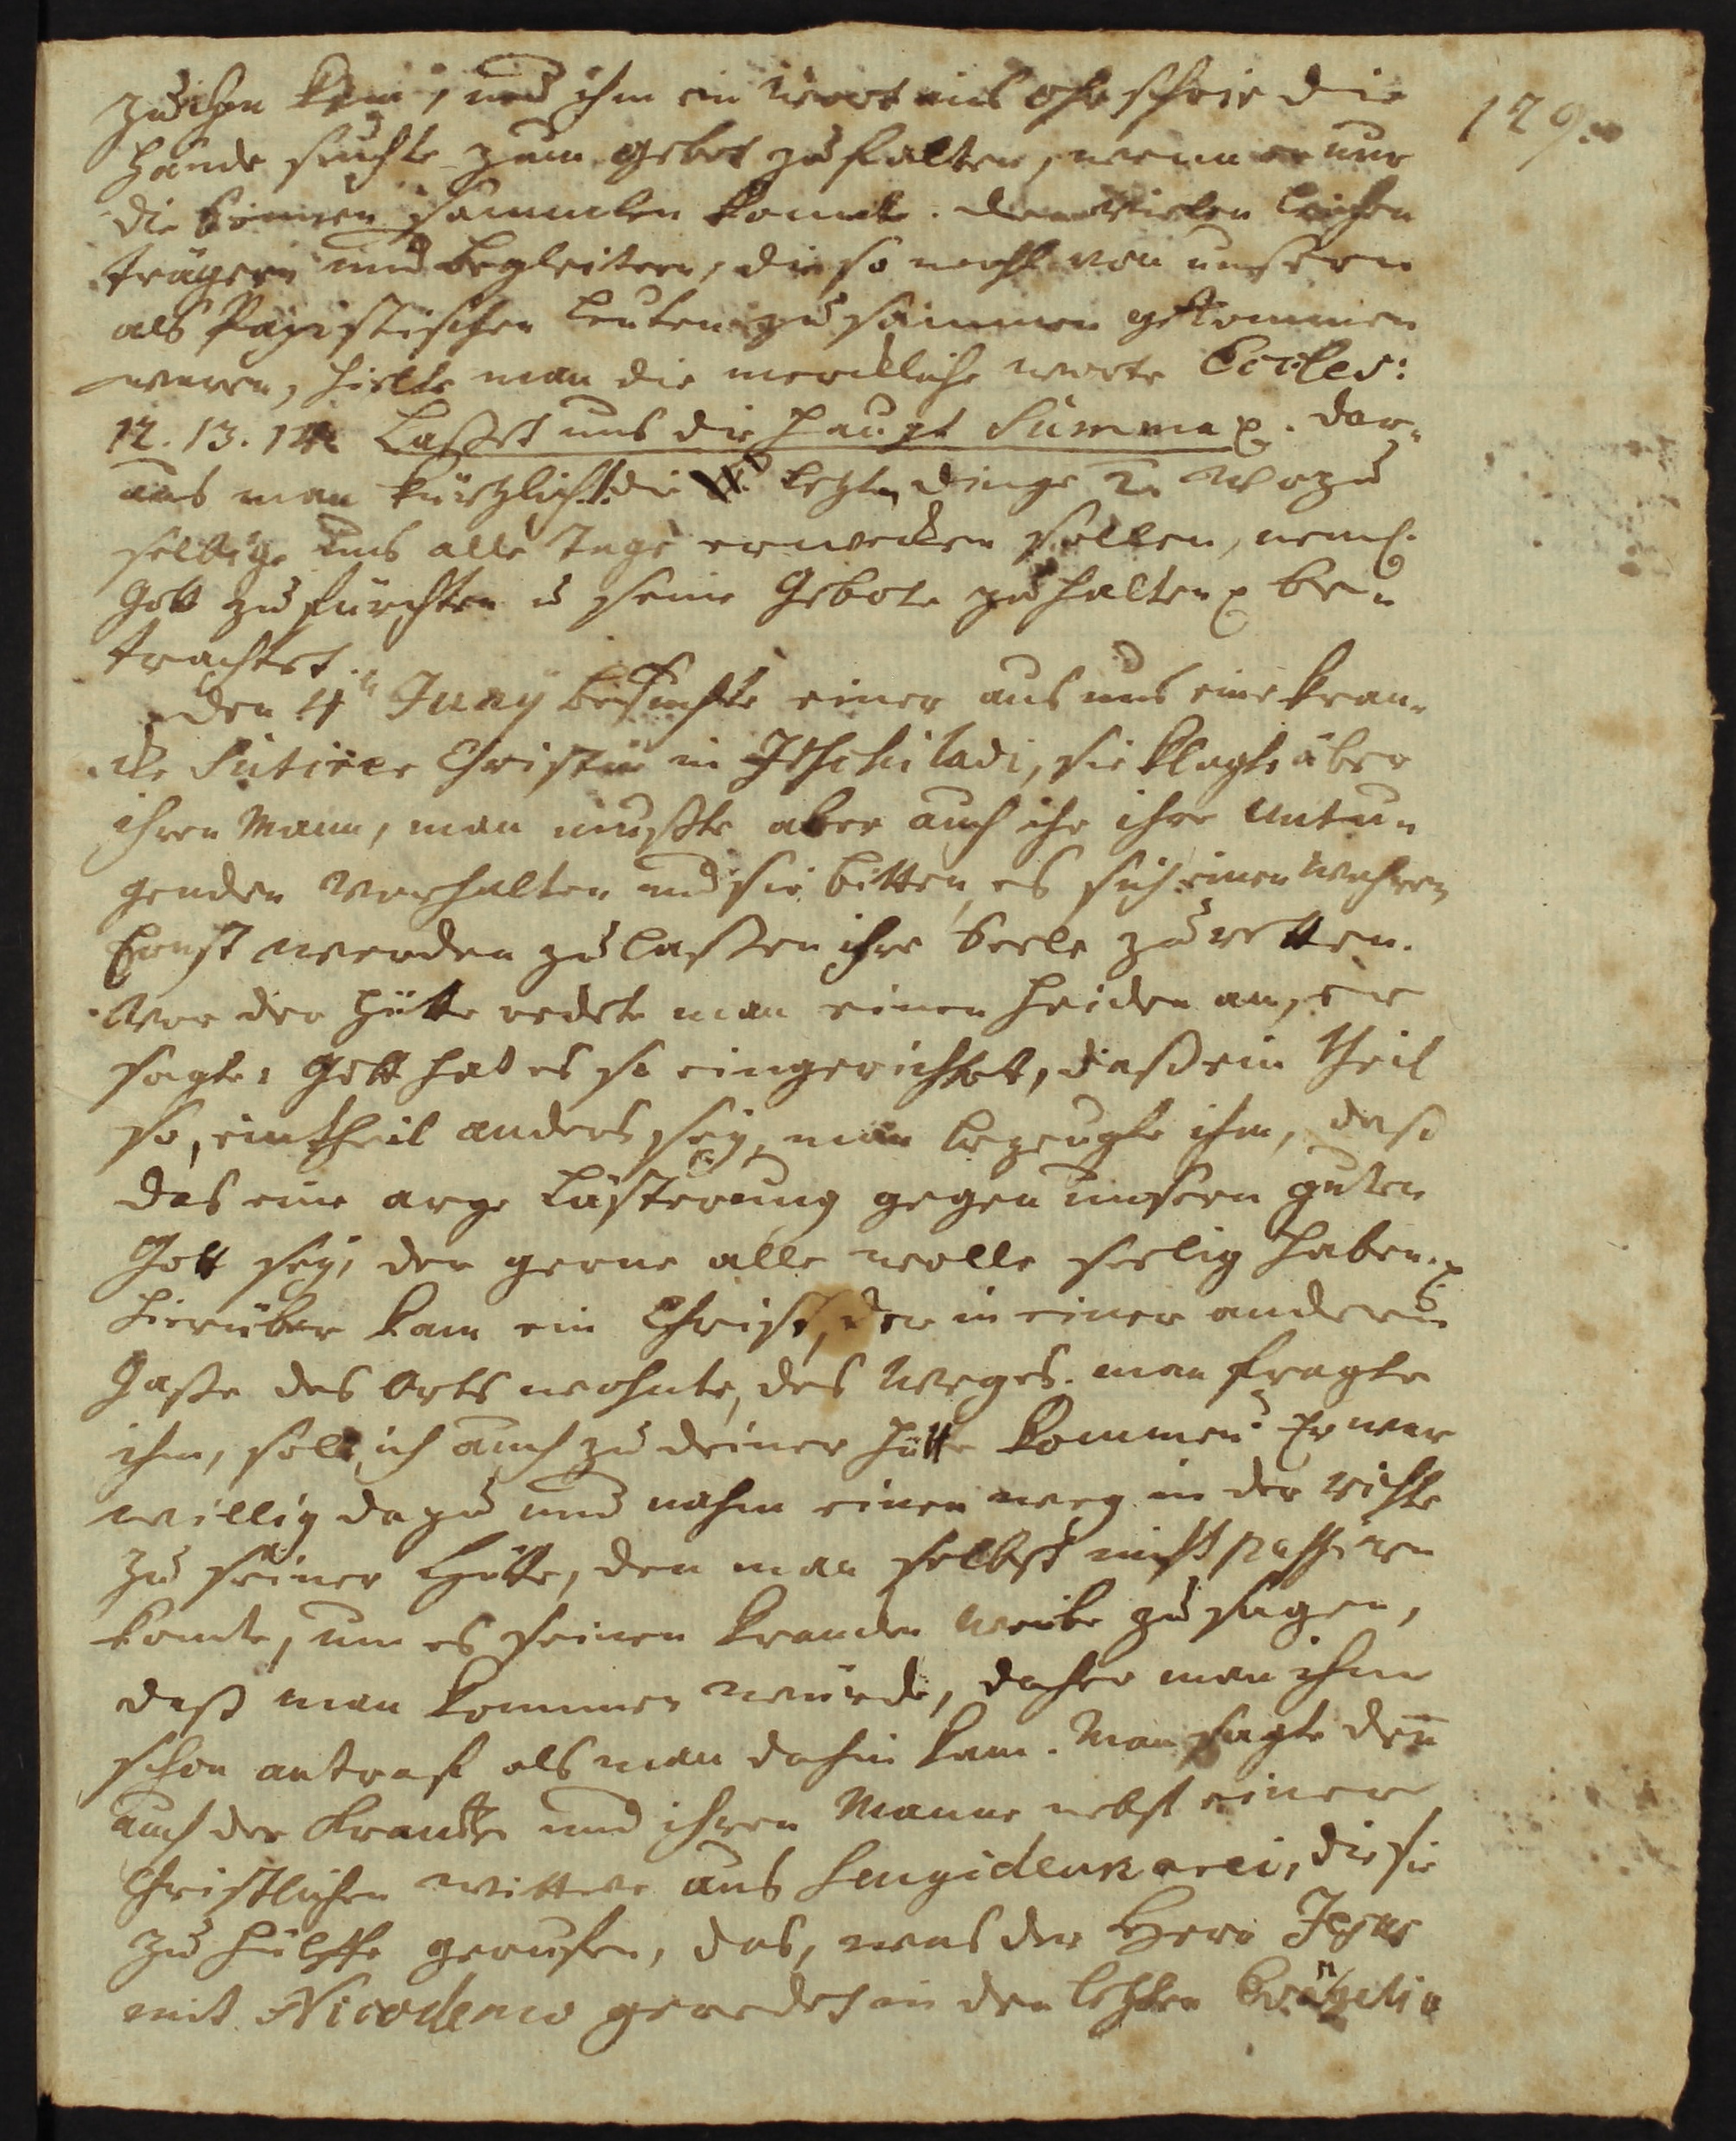 129.
zu ihm kam, und ihm ein Wort ins Ohr schrie die
Hände suchte zum gebet zu falten, wenn er nur
die Sinnen sammlen konnte. Den vielen Leichen
trägern und begleitern, die so wohl von unsern
als Papistischen Leuten zusammen gekommen
waren, hielte man die merckliche worte Eccles:
12. 13. 14 Lasset uns die Haupt Summa p. dar-
aus man kürtzlich die letzten dinge u. wozu
selbige uns alle Tage erwecken sollen, neml.
Gott zu fürchten u seine Gebote zu halten p be-
trachtet.
den 4t Juny besuchte einer aus uns eine kran-
cke Sutirer Christin in Itschiladi, sie klagte über
ihren Mann, man mußte aber auch ihr ihre Untu-
genden vorhalten und sie bitten, es sich einen wahren
Ernst werden zu lassen ihre Seele zu retten.
Vor der Hütte redete man einen Heiden an, er
sagte: Gott hat es so eingerichtet, daß ein theil
so, ein theil anders sey, man bezeugte ihm, daß
das eine arge Lästerung gegen unsern guten
Gott sey, der gerne alle wolle seelig haben. p
Hierüber kam ein Christ, der in einer andern
Gasse des Orts wohnte, des Weges. man fragte
ihn, soll ich auch zu deiner Hütte kommen? Er war
willig dazu und nahm einen weg in der richte
zu seiner Hütte, den man selbst nicht passiren
konte, um es seinen krancken Weibe zu sagen,
daß man kommen würde, daher man ihn
schon antraf als man dahin kam. Man sagte den
auch der Krancken und ihren Manne nebst einer
Christlichen wittwe aus Sengidenkarei, die sie
zu hülffe gerufen, das, was der Herr Jesus
mit Nicodemo geredet in den letzten Evangelio